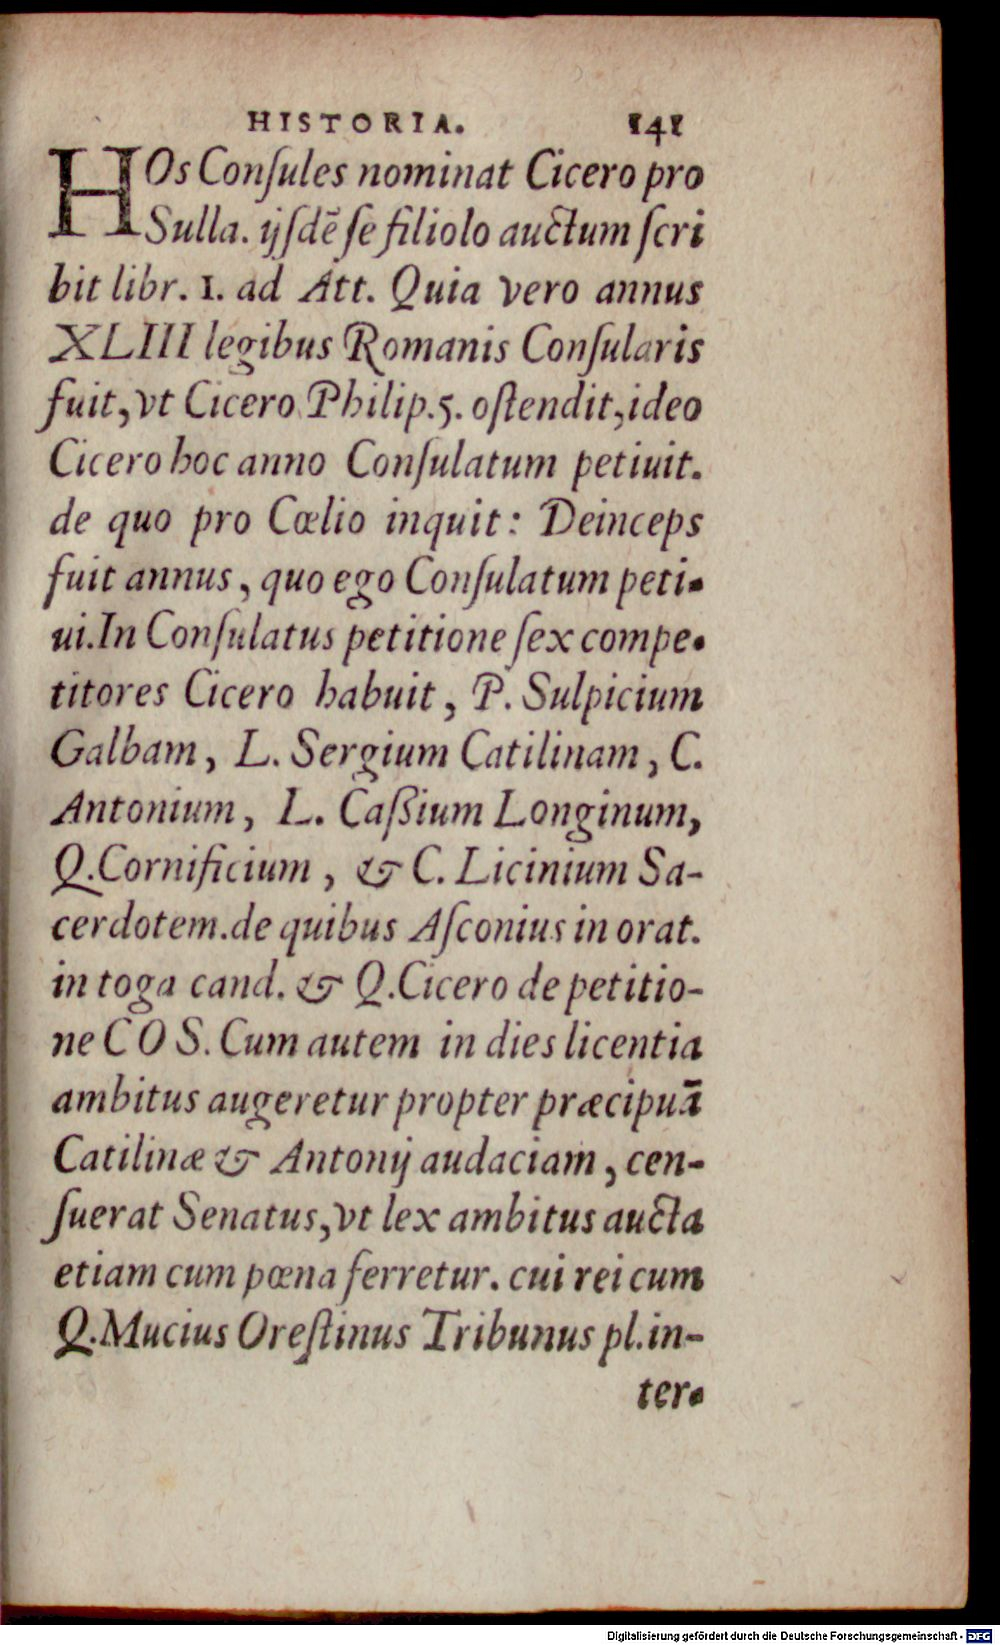 HISTORIA. 141
HOs Conſules nominat Cicero pro
Sulla. ijſdē ſe filiolo auctum ſcri
bit libr. 1. ad Att. Quia vero annus
XLIII legibus Romanis Conſularis
fuit, vt Cicero Philip. 5. oſtendit, ideo
Cicero hoc anno Conſulatum petiuit.
de quo pro Cœlio inquit: Deinceps
fuit annus, quo ego Conſulatum peti-
ui. In Conſulatus petitione ſex compe-
titores Cicero habuit, P. Sulpicium
Galbam, L. Sergium Catilinam, C.
Antonium, L. Caßium Longinum,
Q. Cornificium, & C. Licinium Sa-
cerdotem. de quibus Aſconius in orat.
in toga cand. & Q. Cicero de petitio-
ne COS. Cum autem in dies licentia
ambitus augeretur propter præcipuā
Catilinæ & Antonij audaciam, cen-
ſuerat Senatus, vt lex ambitus aucta
etiam cum pœna ferretur. cui rei cum
Q. Mucius Oreſtinus Tribunus pl. in-
ter-
Digitalisierung gefördert durch die Deutsche Forschungsgemeinschaft - DFG